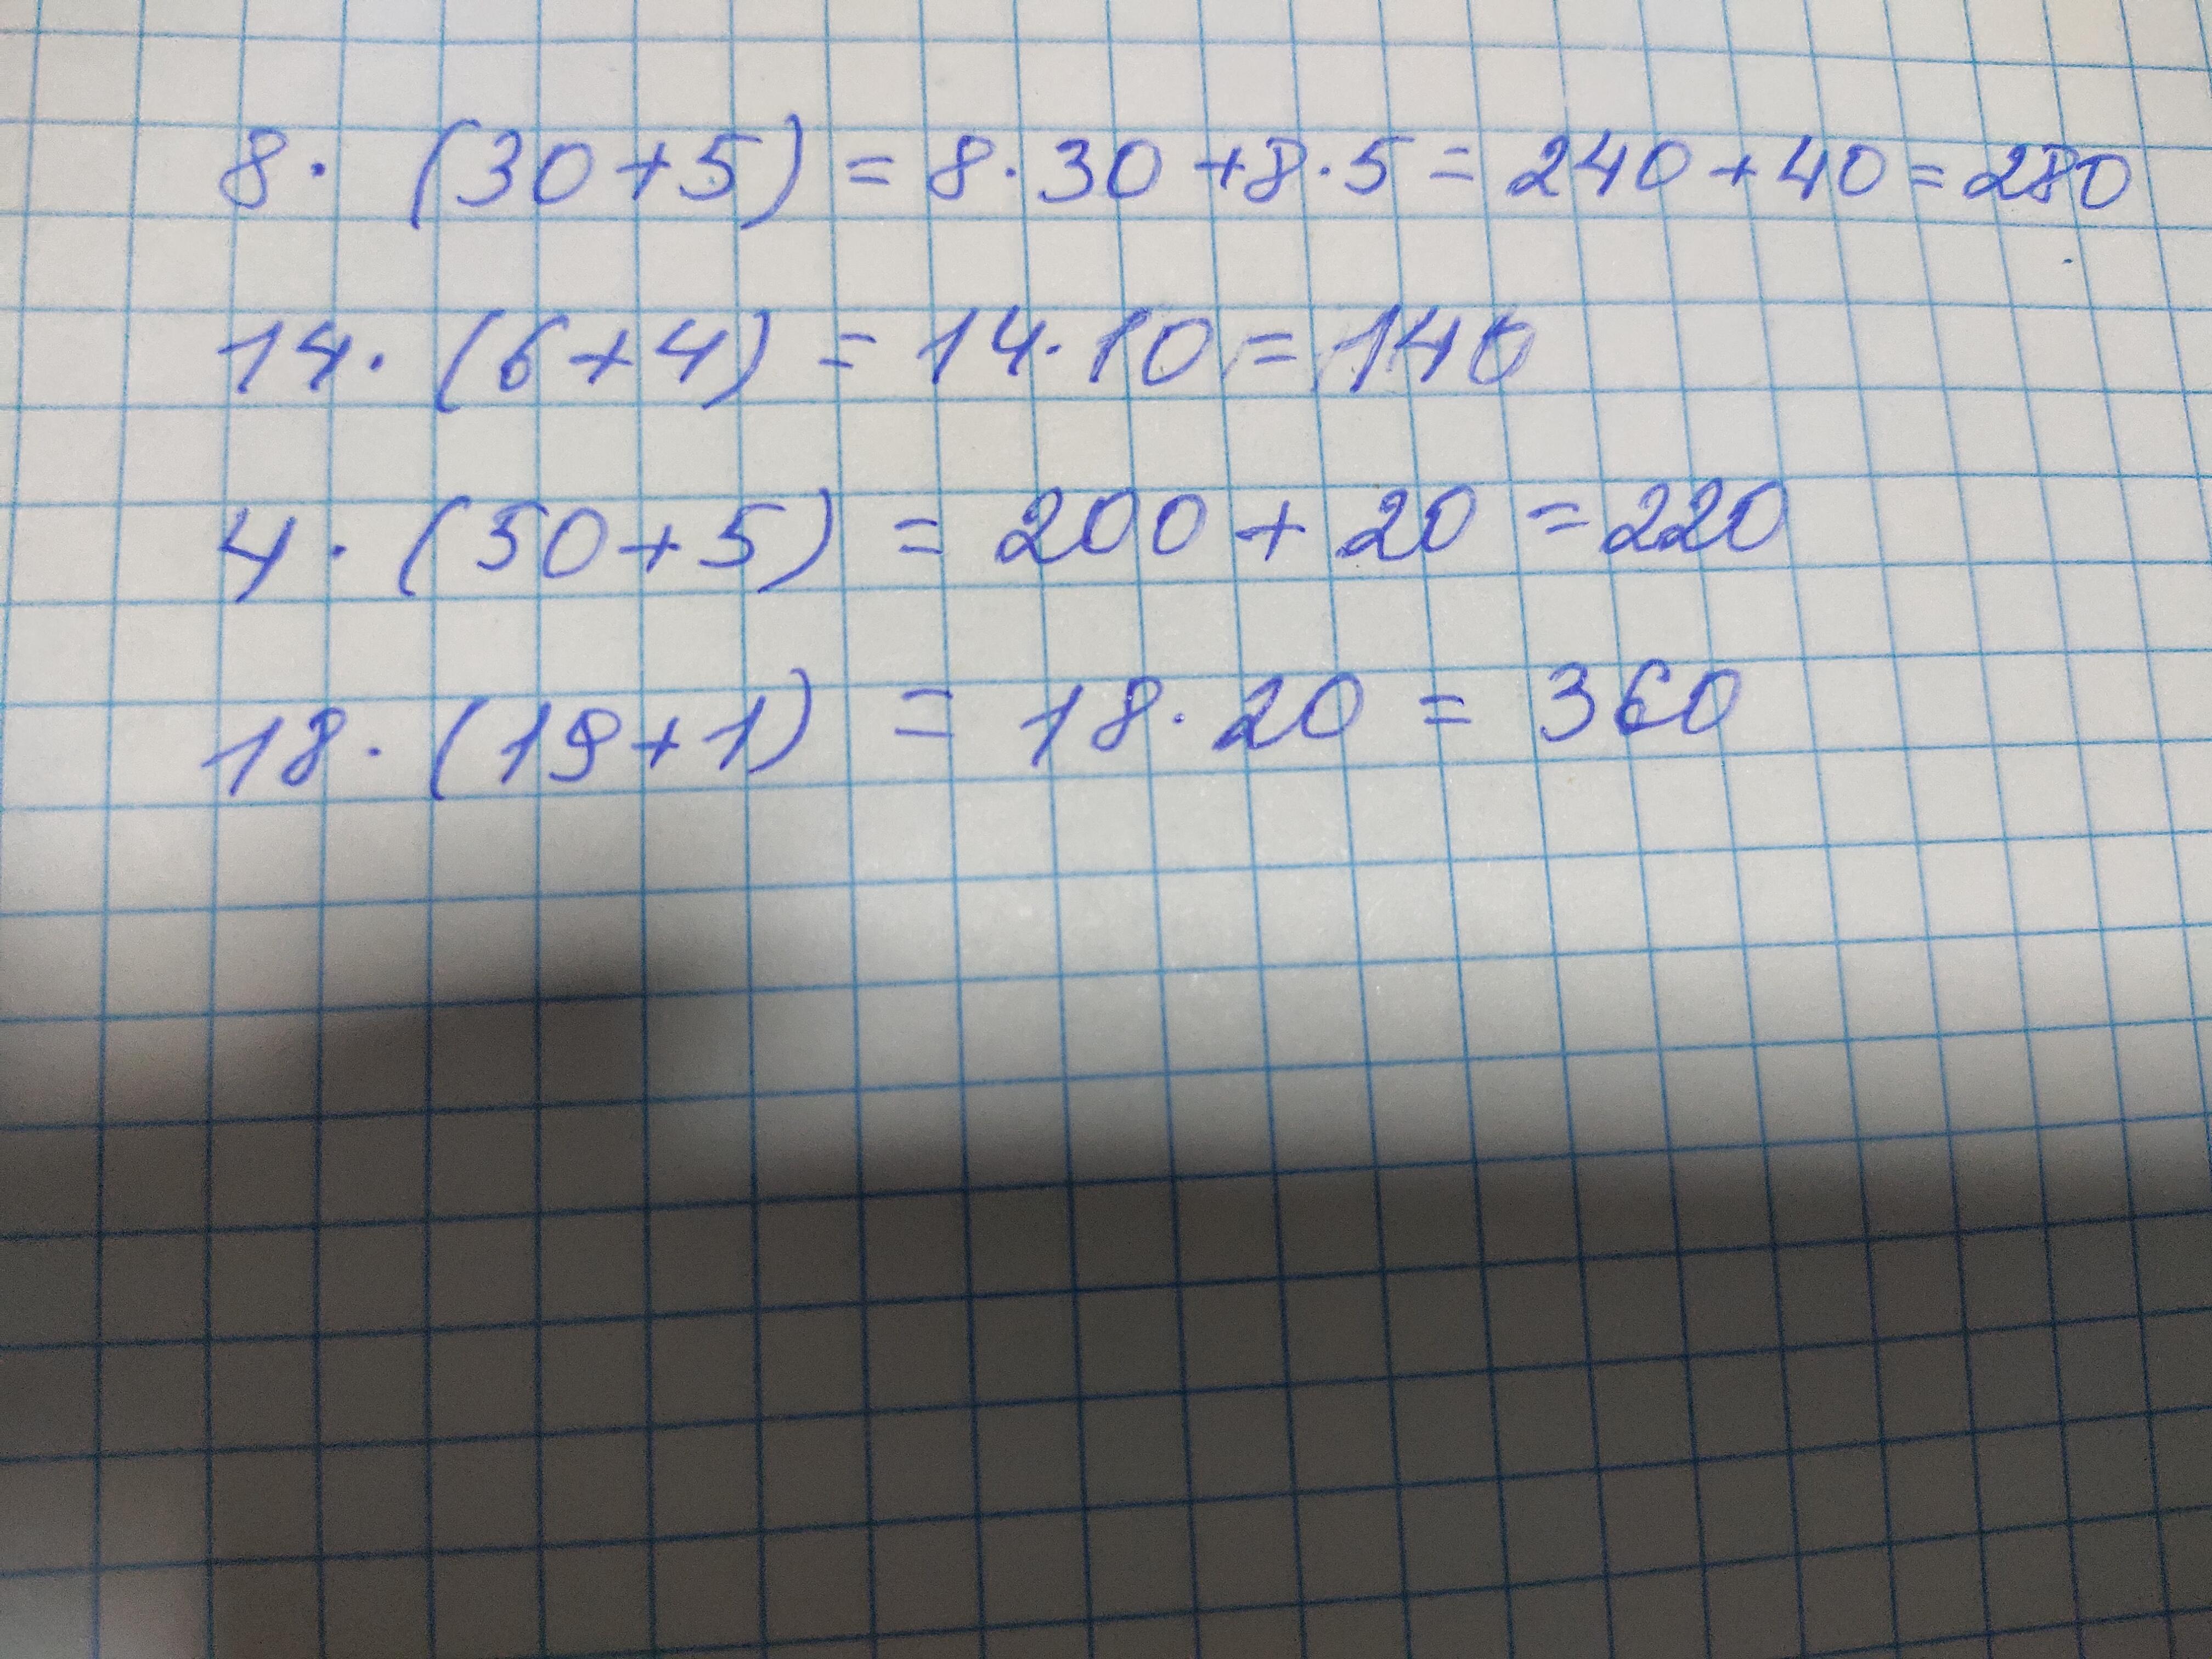 8 · (30+5) = 8 · 30 + 8 · 5 = 240 + 40 = 280
14 · (6+4) = 14 · 10 = 140
4 · (50+5) = 200 + 20 = 220
18 · (19+1) = 18 · 20 = 360